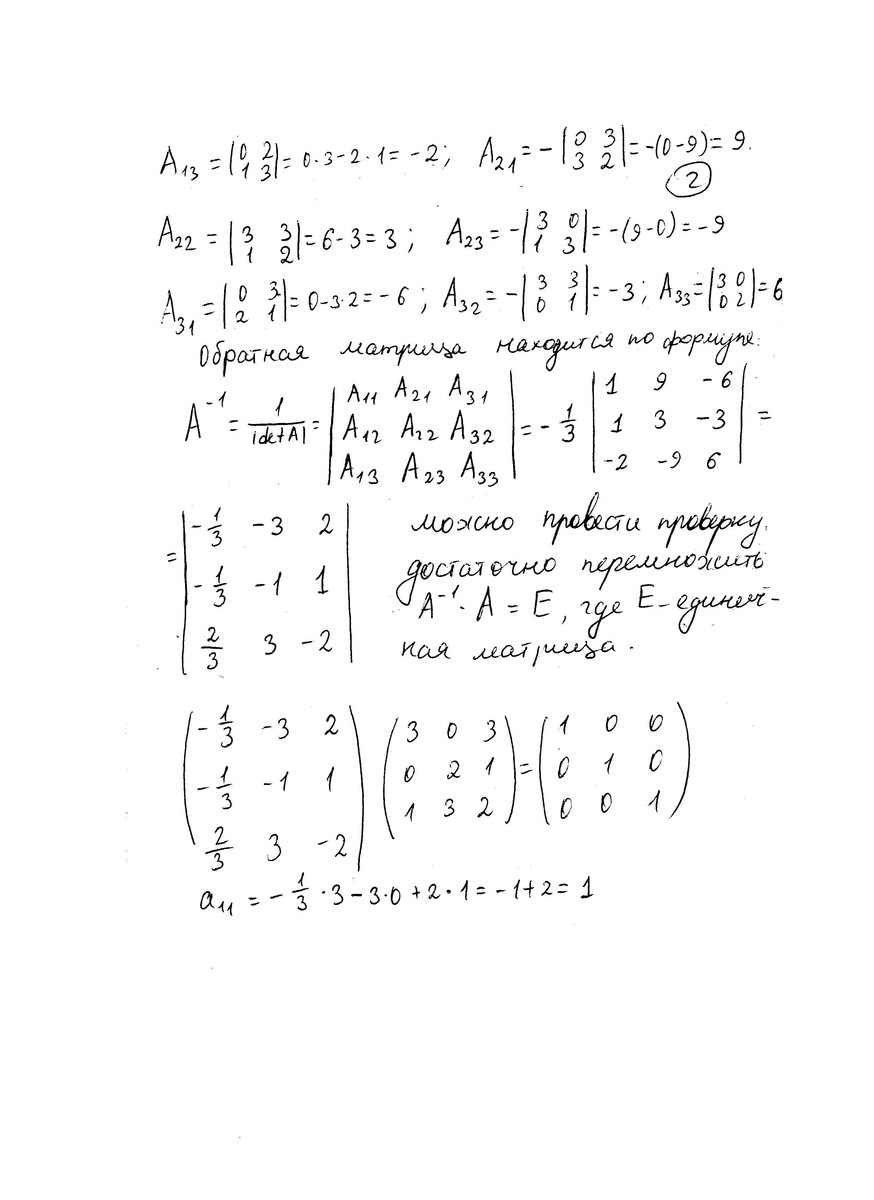 A₁₃ = |0 2; 1 3| = 0·3-2·1 = -2; A₂₁ = -|0 3; 3 2| = -(0-9) = 9.
2
A₂₂ = |3 3; 1 2| = 6-3 = 3; A₂₃ = -|3 0; 1 3| = -(9-0) = -9
A₃₁ = |0 3; 2 1| = 0-3·2 = -6; A₃₂ = -|3 3; 0 1| = -3; A₃₃ = |3 0; 0 2| = 6
Обратная матрица находится по формуле:
A⁻¹ = 1/|detA| = |A₁₁ A₂₁ A₃₁; A₁₂ A₂₂ A₃₂; A₁₃ A₂₃ A₃₃| = -1/3 |1 9 -6; 1 3 -3; -2 -9 6| =
= |-1/3 -3 2; -1/3 -1 1; 2/3 3 -2|
можно провести проверку.
достаточно перемножить
A⁻¹·A = E, где E-единич-
ная матрица.
(-1/3 -3 2; -1/3 -1 1; 2/3 3 -2) (3 0 3; 0 2 1; 1 3 2) = (1 0 0; 0 1 0; 0 0 1)
a₁₁ = -1/3·3-3·0+2·1 = -1+2 = 1